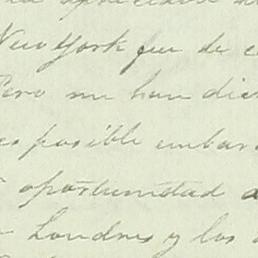 la apreciable
New York fue de
Pero me han dic
es posible embar
oportunidad a
Londres y los